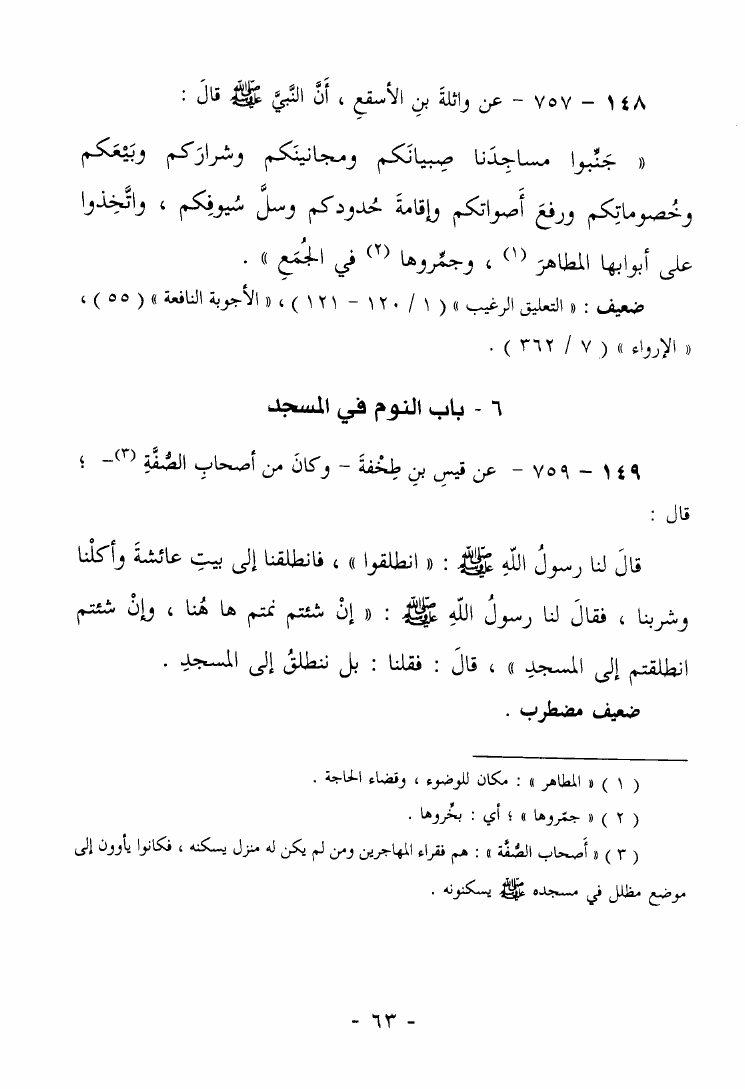 ١٤٨ – ٧٥٧ – عن واثلةَ بنِ الأسقعِ ، أَنَّ النَّبيَّ ﷺ قالَ :
« جَنِّبوا مساجِدَنا صِبيانَكم ومجانينَكم وشرارَكم وبَيْعَكم
وخُصوماتِكم ورفعَ أَصواتكم وإقامةَ حُدودكم وسلَّ سُيوفِكم ، واتَّخِذوا
على أبوابها المطاهرَ (١) ، وجمِّروها (٢) في الجُمَعِ » .
ضعيف : « التعليق الرغيب » ( ١ / ١٢٠ – ١٢١ ) ، « الأجوبة النافعة » ( ٥٥ ) ،
« الإرواء » ( ٧ / ٣٦٢ ) .
٦ - باب النوم في المسجد
١٤٩ – ٧٥٩ – عن قيسِ بنِ طِخْفةَ – وكانَ من أصحابِ الصُّفَّةِ (٣)– ؛
قال :
قالَ لنا رسولُ اللّهِ ﷺ : « انطلقوا » ، فانطلقنا إلى بيتِ عائشةَ وأكلْنا
وشربنا ، فقالَ لنا رسولُ اللّهِ ﷺ : « إنْ شئتم نمتم ها هُنا ، وإنْ شئتم
انطلقتم إلى المسجدِ » ، قالَ : فقلنا : بل ننطلقُ إلى المسجدِ .
ضعيف مضطرب .
( ١ ) « المطاهر » : مكان للوضوء ، وقضاء الحاجة .
( ٢ ) « جمّروها » ؛ أي : بخِّروها .
( ٣ ) « أَصحاب الصُّفَّة » : هم فقراء المهاجرين ومن لم يكن له منزل يسكنه ، فكانوا يأوون إلى
موضع مظلل في مسجده ﷺ يسكنونه .
- ٦٣ -